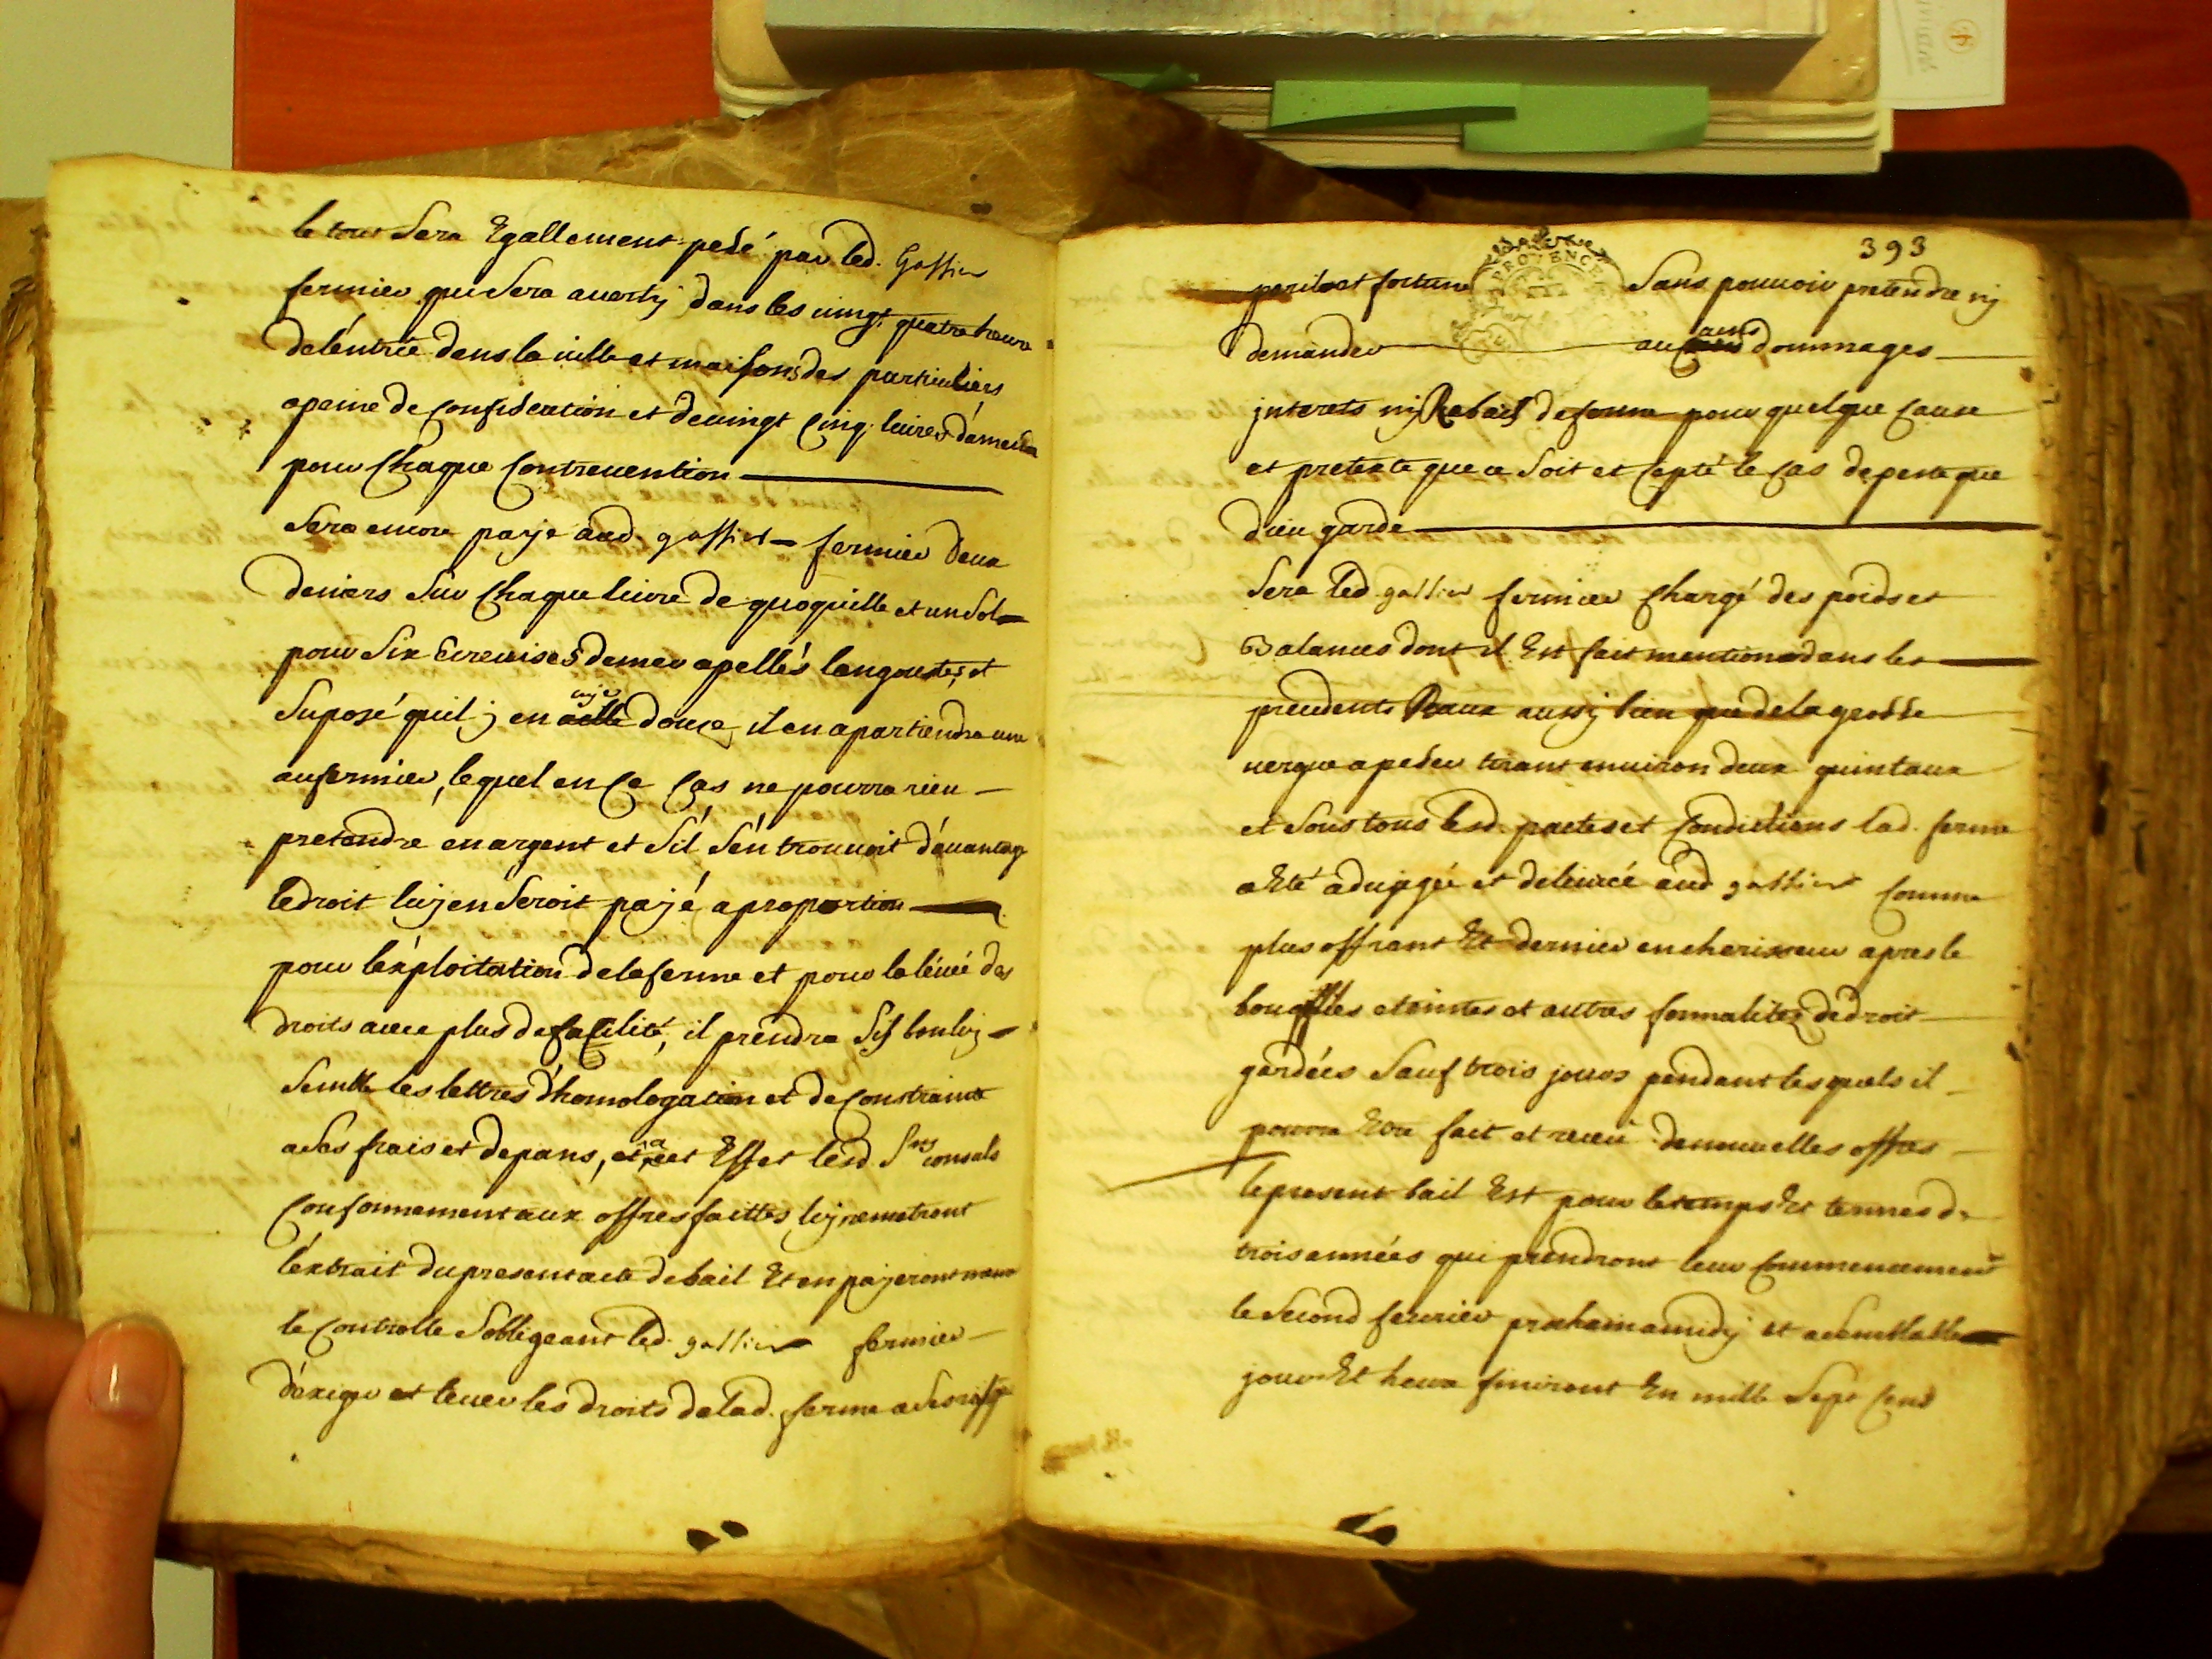 le tout sera Egallement pesé par led. Gassier
fermier qui sera averty dans les vingt quatre heure
de l'éntrée dans la ville et maisons des particuliers
a peine de confiscation et de vingt cinq livres d'amende
pour chaque contrevention
sera encore paÿe aud. gassier fermier deux
deniers sur chaque livre de quoquille et un sol
pour six Ecrevises de mer apellés langoustes, et
suposé quil ÿ en aye douze, il en apartiendra une
au fermier, lequel en ce cas ne pourra rien
pretendre en argent et s'il s'én trouvoit d'avantage
le droit luy en seroit payé a proportion
pour l'éxploitation de la ferme et pour la lévée des
droits avec plus de facilité, il prendra sis bon luy
semble les lettres d'homologation et de constrainte
a ses frais et depans, et a cet Effet lesd. Srs consuls
conformement aux offres faittes luy remetront
l'éxtrait du present acte de bail Et en payeront
le controlle s'obligeant led. gassier fermier
d'éxiger et lever les droits de lad. ferme a ses risq
393
PROVENCE
perils et fortune sans pouvoir pretendre ny
demander aucuns dommages
interets ny Rabais de ferme pour quelque cause
et pretexte que ce soit et cepté le cas de peste que
dieu garde
sera led. gassier fermier chargé des poids et
Balances dont il Est fait mention dans les
precedents Baux aussy bien que de la grosse
vergue a peser tirant environ deux quintaux
et sous tous lesd. pactes et condictions lad. ferme
a Eté adujgée et delivrée aud gassier comme
plus offrant Et dernier encherisseur apres le
bougilles eteintes et autres formalitez de droit
gardées sauf trois jours pendant lesquels il
pourra Etre fait et receu de nouvelles offres
le present bail Est pour le temps Et termes de
trois années qui prendront leur commencement
le second fevrier prochain a midy et a semblable
jour Et heure finiront En mille sept cens